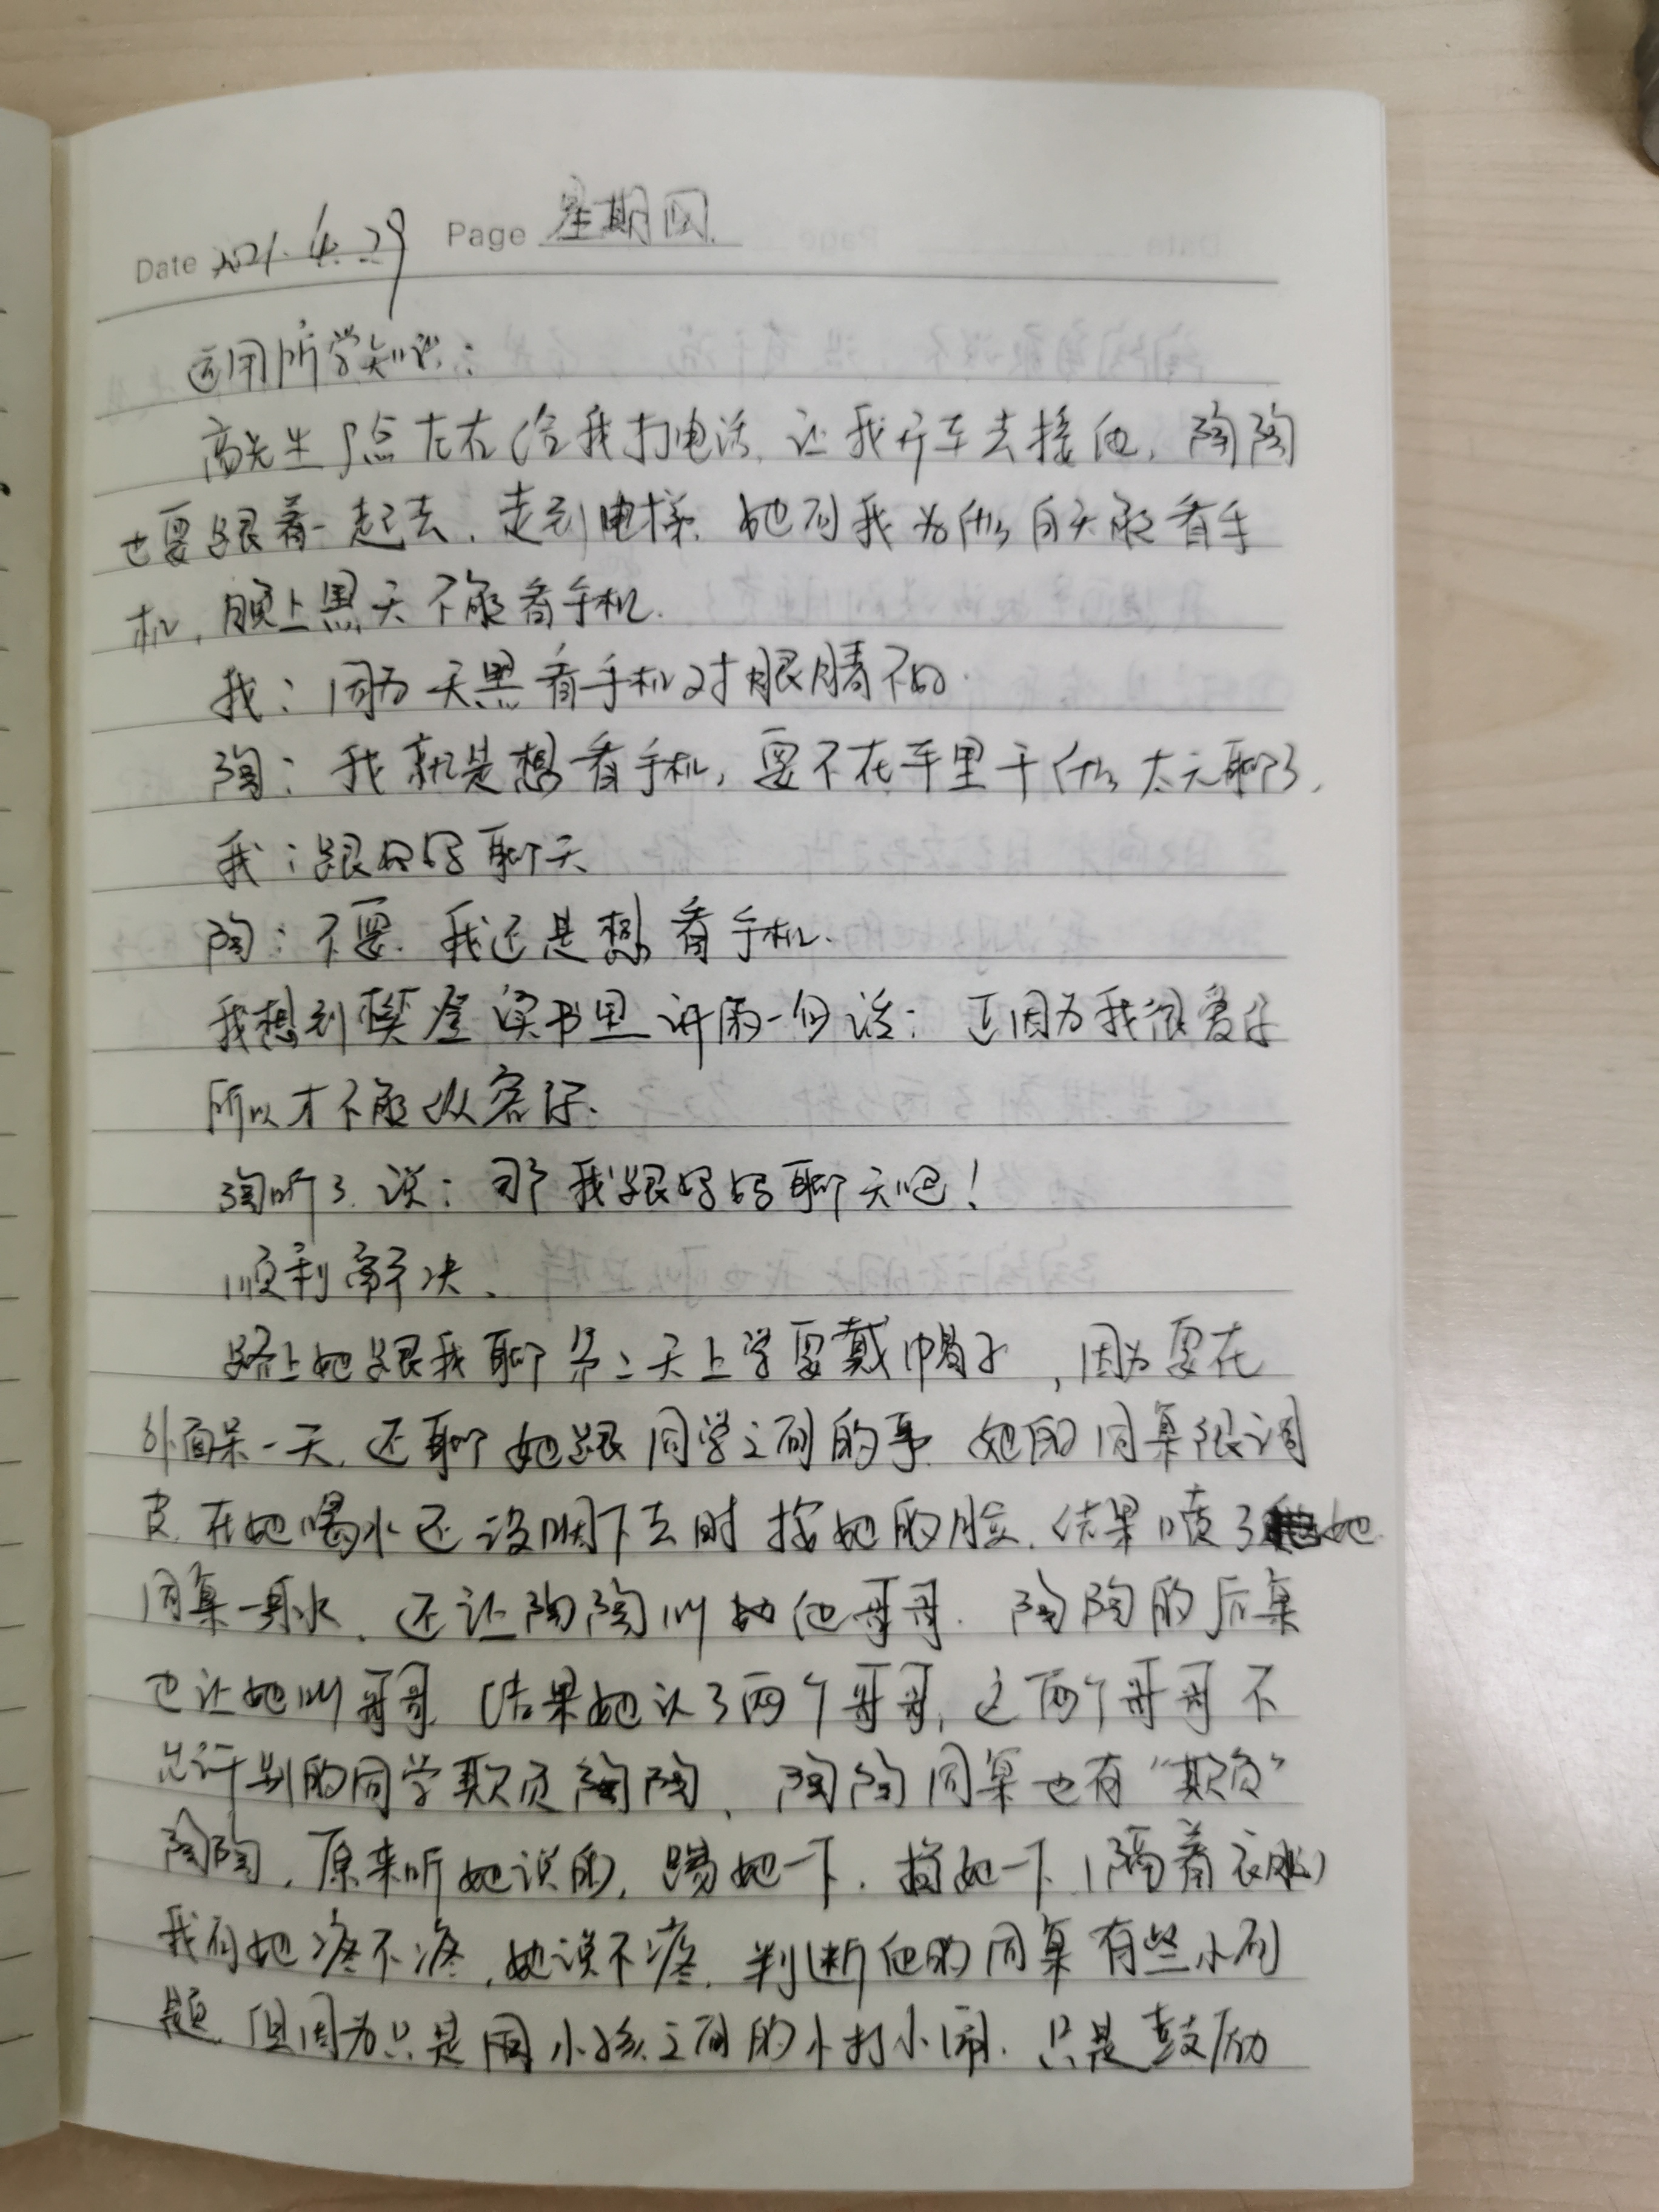 Date 2021.4.29 Page 星期四.
运用所学知识：
高先生 点左右给我打电话，让我开车去接他，陶陶
也要跟着一起去，走到电梯，她问我为什么白天能看手
机，晚上黑天不能看手机.
我：因为天黑看手机对眼睛不好.
陶：我就是想看手机，要不在车里干什么，太无聊了，
我：跟妈妈聊天
陶：不要，我还是想看手机.
我想到樊登读书里讲的一句话：正因为我很爱你
所以才不能纵容你.
陶听了，说：那我跟妈妈聊天吧！
顺利解决.
路上她跟我聊第二天上学要戴帽子，因为要在
外面呆一天，还聊她跟同学之间的事，她的同桌很调
皮，在她喝水还没咽下去时按她的脸，结果喷了她
同桌一身水，还让陶陶叫他哥哥. 陶陶的后桌
也让她叫哥哥，结果她认了两个哥哥，这两个哥哥不
允许别的同学欺负陶陶，陶陶同桌也有“欺负”
陶陶，原来听她说的，踢她一下，掐她一下（隔着衣服）
我问她疼不疼，她说不疼，判断他的同桌有些小问
题，但因为只是同小孩之间的小打小闹，只是鼓励